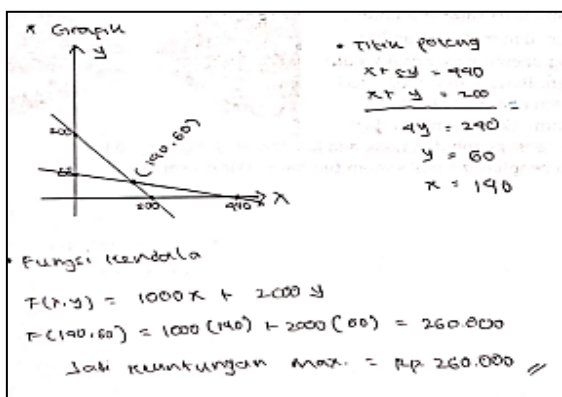 * Grafik
y
200
(140,60)
200
440
x
• Titik potong
x + 5y = 440
x + y = 200
4y = 240
y = 60
x = 140
• Fungsi kendala
F(x,y) = 1000x + 2000y
F(140,60) = 1000(140) + 2000(60) = 260.000
Jadi keuntungan max. = Rp 260.000 //